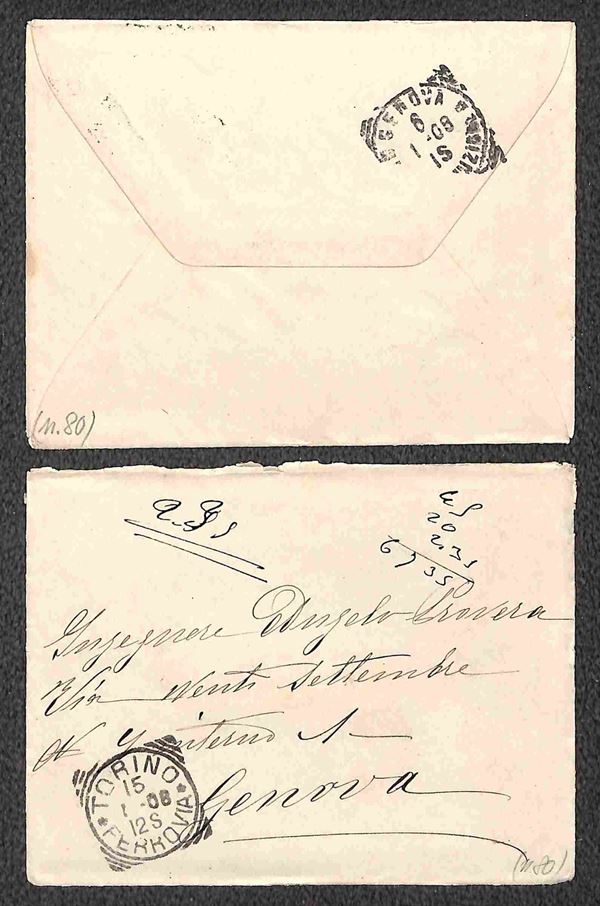 GENOVA
6
1 -08
1S
(n. 80)
45
20
2.35
6735
Ingegnere Angelo Provera
Via Venti Settembre
N interno 1
Genova
TORINO
15
1 -08
12S
FERROVIA
(n. 80)